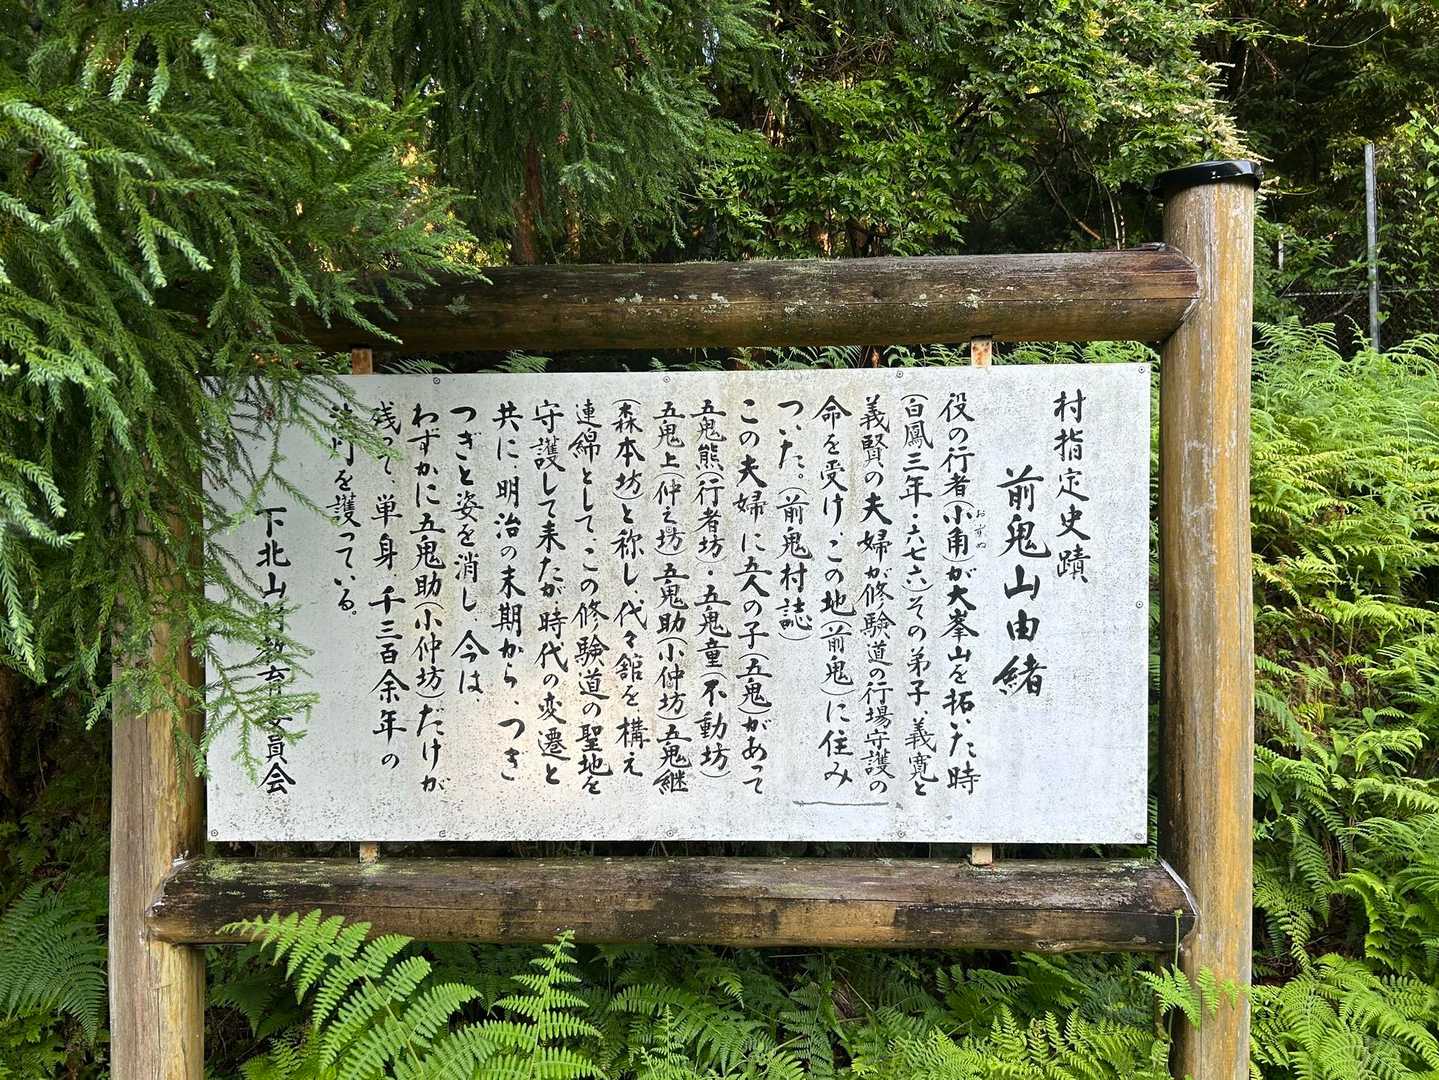 村指定史蹟
前鬼山由緒
役の行者(小角)が大峯山を拓いた時
おずぬ
(白鳳三年・六七六)その弟子、義寛と
義賢の夫婦が修験道の行場守護の
命を受け、この地(前鬼)に住み
ついた。(前鬼村誌)
この夫婦に五人の子(五鬼)があって
五鬼熊(行者坊)・五鬼童(不動坊)
五鬼上(仲之坊)五鬼助(小仲坊)五鬼継
(森本坊)と称し、代々舘を構え
連綿として、この修験道の聖地を
守護して来たが時代の変遷と
共に、明治の末期から、つぎ
つぎと姿を消し、今は、
わずかに五鬼助(小仲坊)だけが
残って、単身、千三百余年の
灯を護っている。
下北山村教育委員会